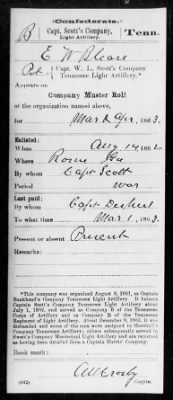 (Confederate.)
B Capt. Scott's Company, Light Artillery. Tenn.
E W
Pvt., Capt. W. L. Scott's Company Tennessee Light Artillery.*
Appears on
Company Muster Roll
of the organization named above,
for Mar & Apr, 1863.
Enlisted:
When Aug 14, 1862
Where Rome Ga
By whom Capt Scott
Period war
Last paid:
By whom Capt
To what time Mar 1, 1863.
Present or absent Present
Remarks:
*This company was organized August 9, 1861, as Captain
Company Tennessee Light Artillery. It became
Captain Scott's Company Tennessee Light Artillery about
July 1, 1862, and served as Company B of the Tennessee
Corps of Artillery and as Company B of the Tennessee
Regiment of Light Artillery. About December 9, 1863, it was
disbanded and some of the men were assigned to
Company Tennessee Light Artillery; others subsequently
served in Company Mississippi Light Artillery and are reported
as having been detailed from a Captain Scott's Company.
Book mark:
(642) Copyist.